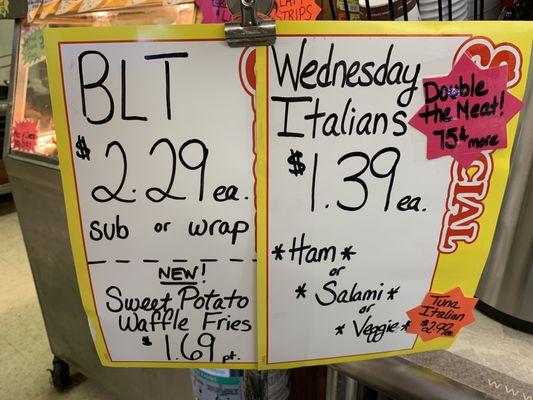 BLT
$2.29 ea.
sub or wrap
NEW!
Sweet Potato
Waffle Fries
$1.69 pt.
Wednesday
Italians
$1.39 ea.
*Ham*
or
*Salami*
or
*Veggie*
Double
the Meat!
75¢ more
SPECIAL
Tuna
Italian
$2.99 ea.
STRIPS